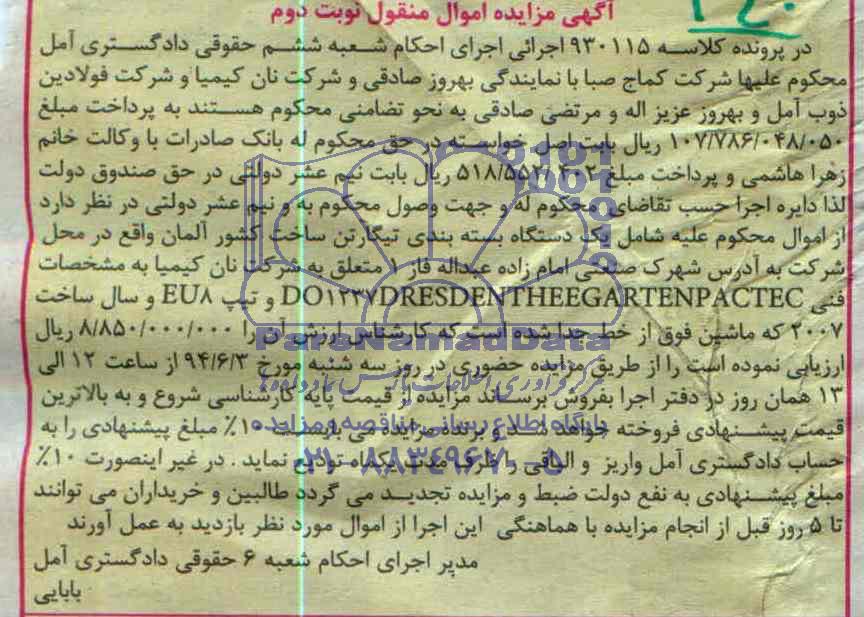 ۲۴۰
آگهی مزایده اموال منقول نوبت دوم
در پرونده کلاسه ۹۳۰۱۱۵ اجرائی اجرای احکام شعبه ششم حقوقی دادگستری آمل
محکوم علیها شرکت کماج صبا با نمایندگی بهروز صادقی و شرکت نان کیمیا و شرکت فولادین
ذوب آمل و بهروز عزیز اله و مرتضی صادقی به نحو تضامنی محکوم هستند به پرداخت مبلغ
۱۰۷/۷۸۶/۰۴۸/۰۵۰ ریال بابت اصل خواسته در حق محکوم له بانک صادرات با وکالت خانم
زهرا هاشمی و پرداخت مبلغ ۵۱۸/۵۵۲/۴۰۲ ریال بابت نیم عشر دولتی در حق صندوق دولت
لذا دایره اجرا حسب تقاضای محکوم له و جهت وصول محکوم به و نیم عشر دولتی در نظر دارد
از اموال محکوم علیه شامل یک دستگاه بسته بندی تیگارتن ساخت کشور آلمان واقع در محل
شرکت به آدرس شهرک صنعتی امام زاده عبداله فاز ۱ متعلق به شرکت نان کیمیا به مشخصات
فنی DO۱۲۳۷DRESDENTHEEGARTENPACTEC و تیپ EU۸ و سال ساخت
۲۰۰۷ که ماشین فوق از خط جدا شده است که کارشناس ارزش آن را ۸/۸۵۰/۰۰۰/۰۰۰ ریال
ارزیابی نموده است را از طریق مزایده حضوری در روز سه شنبه مورخ ۹۴/۶/۳ از ساعت ۱۲ الی
۱۳ همان روز در دفتر اجرا بفروش برساند مزایده از قیمت پایه کارشناسی شروع و به بالاترین
قیمت پیشنهادی فروخته خواهد شد و برنده مزایده می بایست ۱۰٪ مبلغ پیشنهادی را به
حساب دادگستری آمل واریز و الباقی را ظرف مدت یکماه تودیع نماید. در غیر اینصورت ۱۰٪
مبلغ پیشنهادی به نفع دولت ضبط و مزایده تجدید می گردد طالبین و خریداران می توانند
تا ۵ روز قبل از انجام مزایده با هماهنگی این اجرا از اموال مورد نظر بازدید به عمل آورند
مدیر اجرای احکام شعبه ۶ حقوقی دادگستری آمل
بابایی
ParsNamadData
پایگاه اطلاع رسانی مناقصه و مزایده
۰۲۱-۸۸۳۴۹۶۷۰-۵